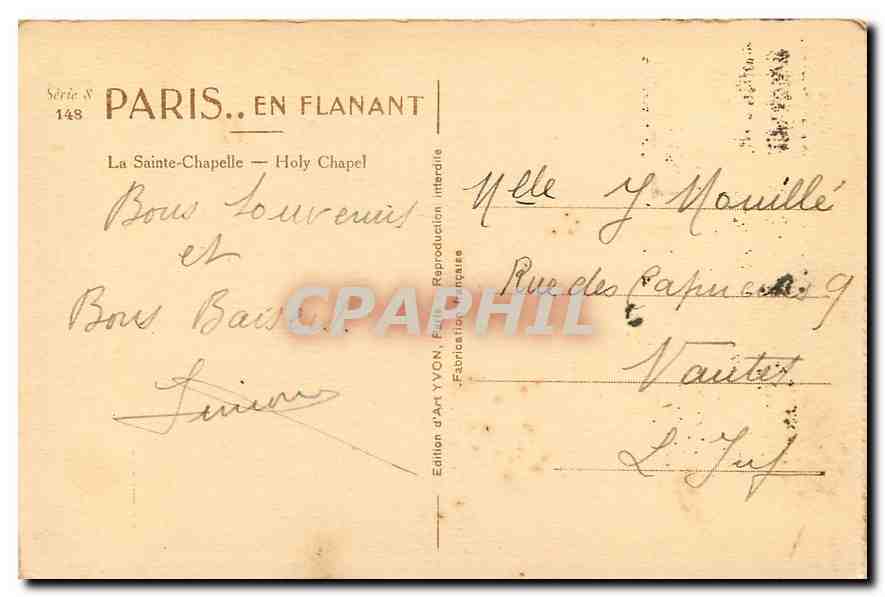 Série 8
148
PARIS.. EN FLANANT
La Sainte-Chapelle — Holy Chapel
Bons Souvenirs
et
Bons Baisers
Simone
Edition d'Art YVON, Paris. Reproduction interdite
Fabrication française
Mlle J. Mouillé
Rue des Capucins 9
Nantes
L. Inf
CPAPHIL